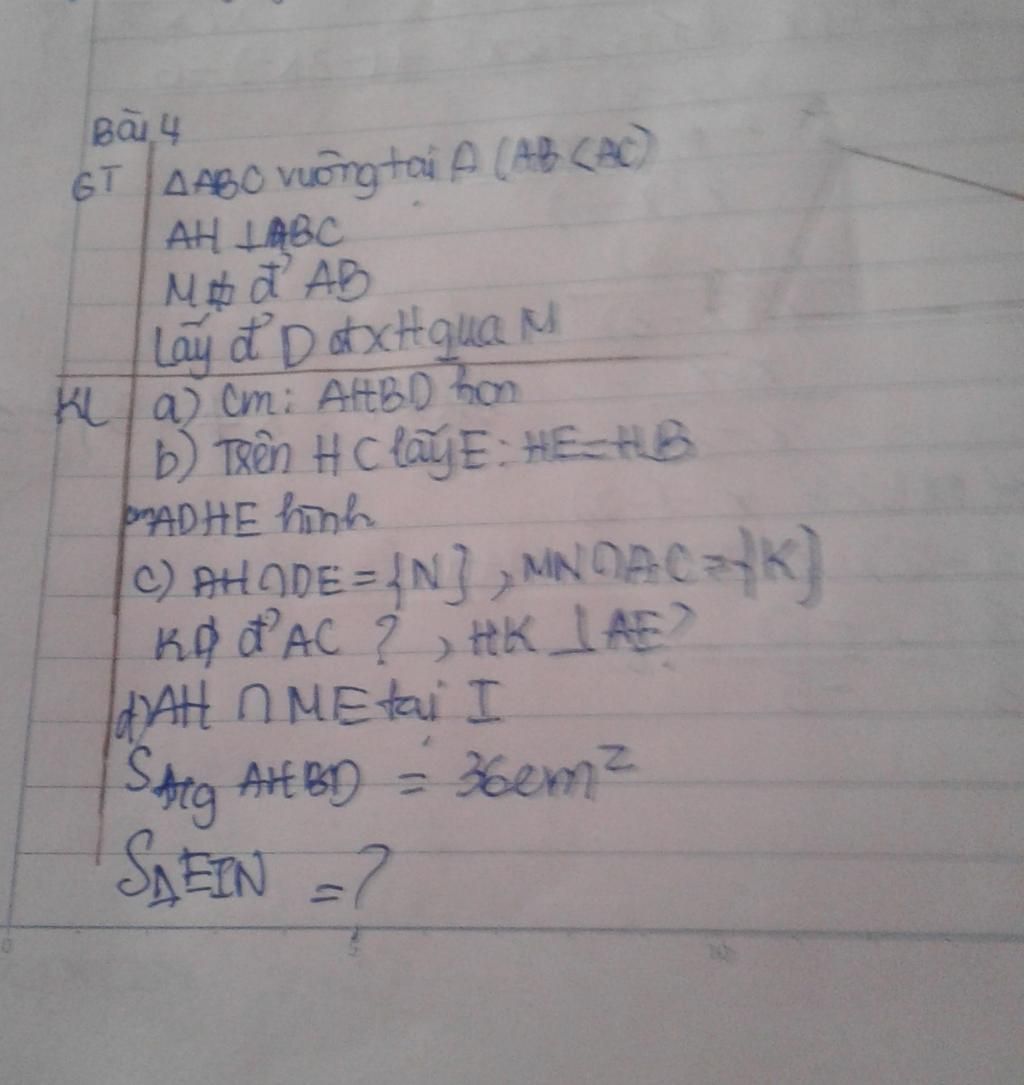 Bài 4
GT ΔABC vuông tại A (AB < AC)
AH ⊥ BC
M đ' AB
Lấy đ' D đx H qua M
KL a) Cm: AHBD hcn
b) Trên HC lấy E: HE = HB
cm ADHE hình
c) AH ∩ DE = {N}, MN ∩ AC = {K}
K đ' AC ?, HK ⊥ AE?
d) AH ∩ ME tại I
S AHBD = 36cm²
SΔEIN = ?